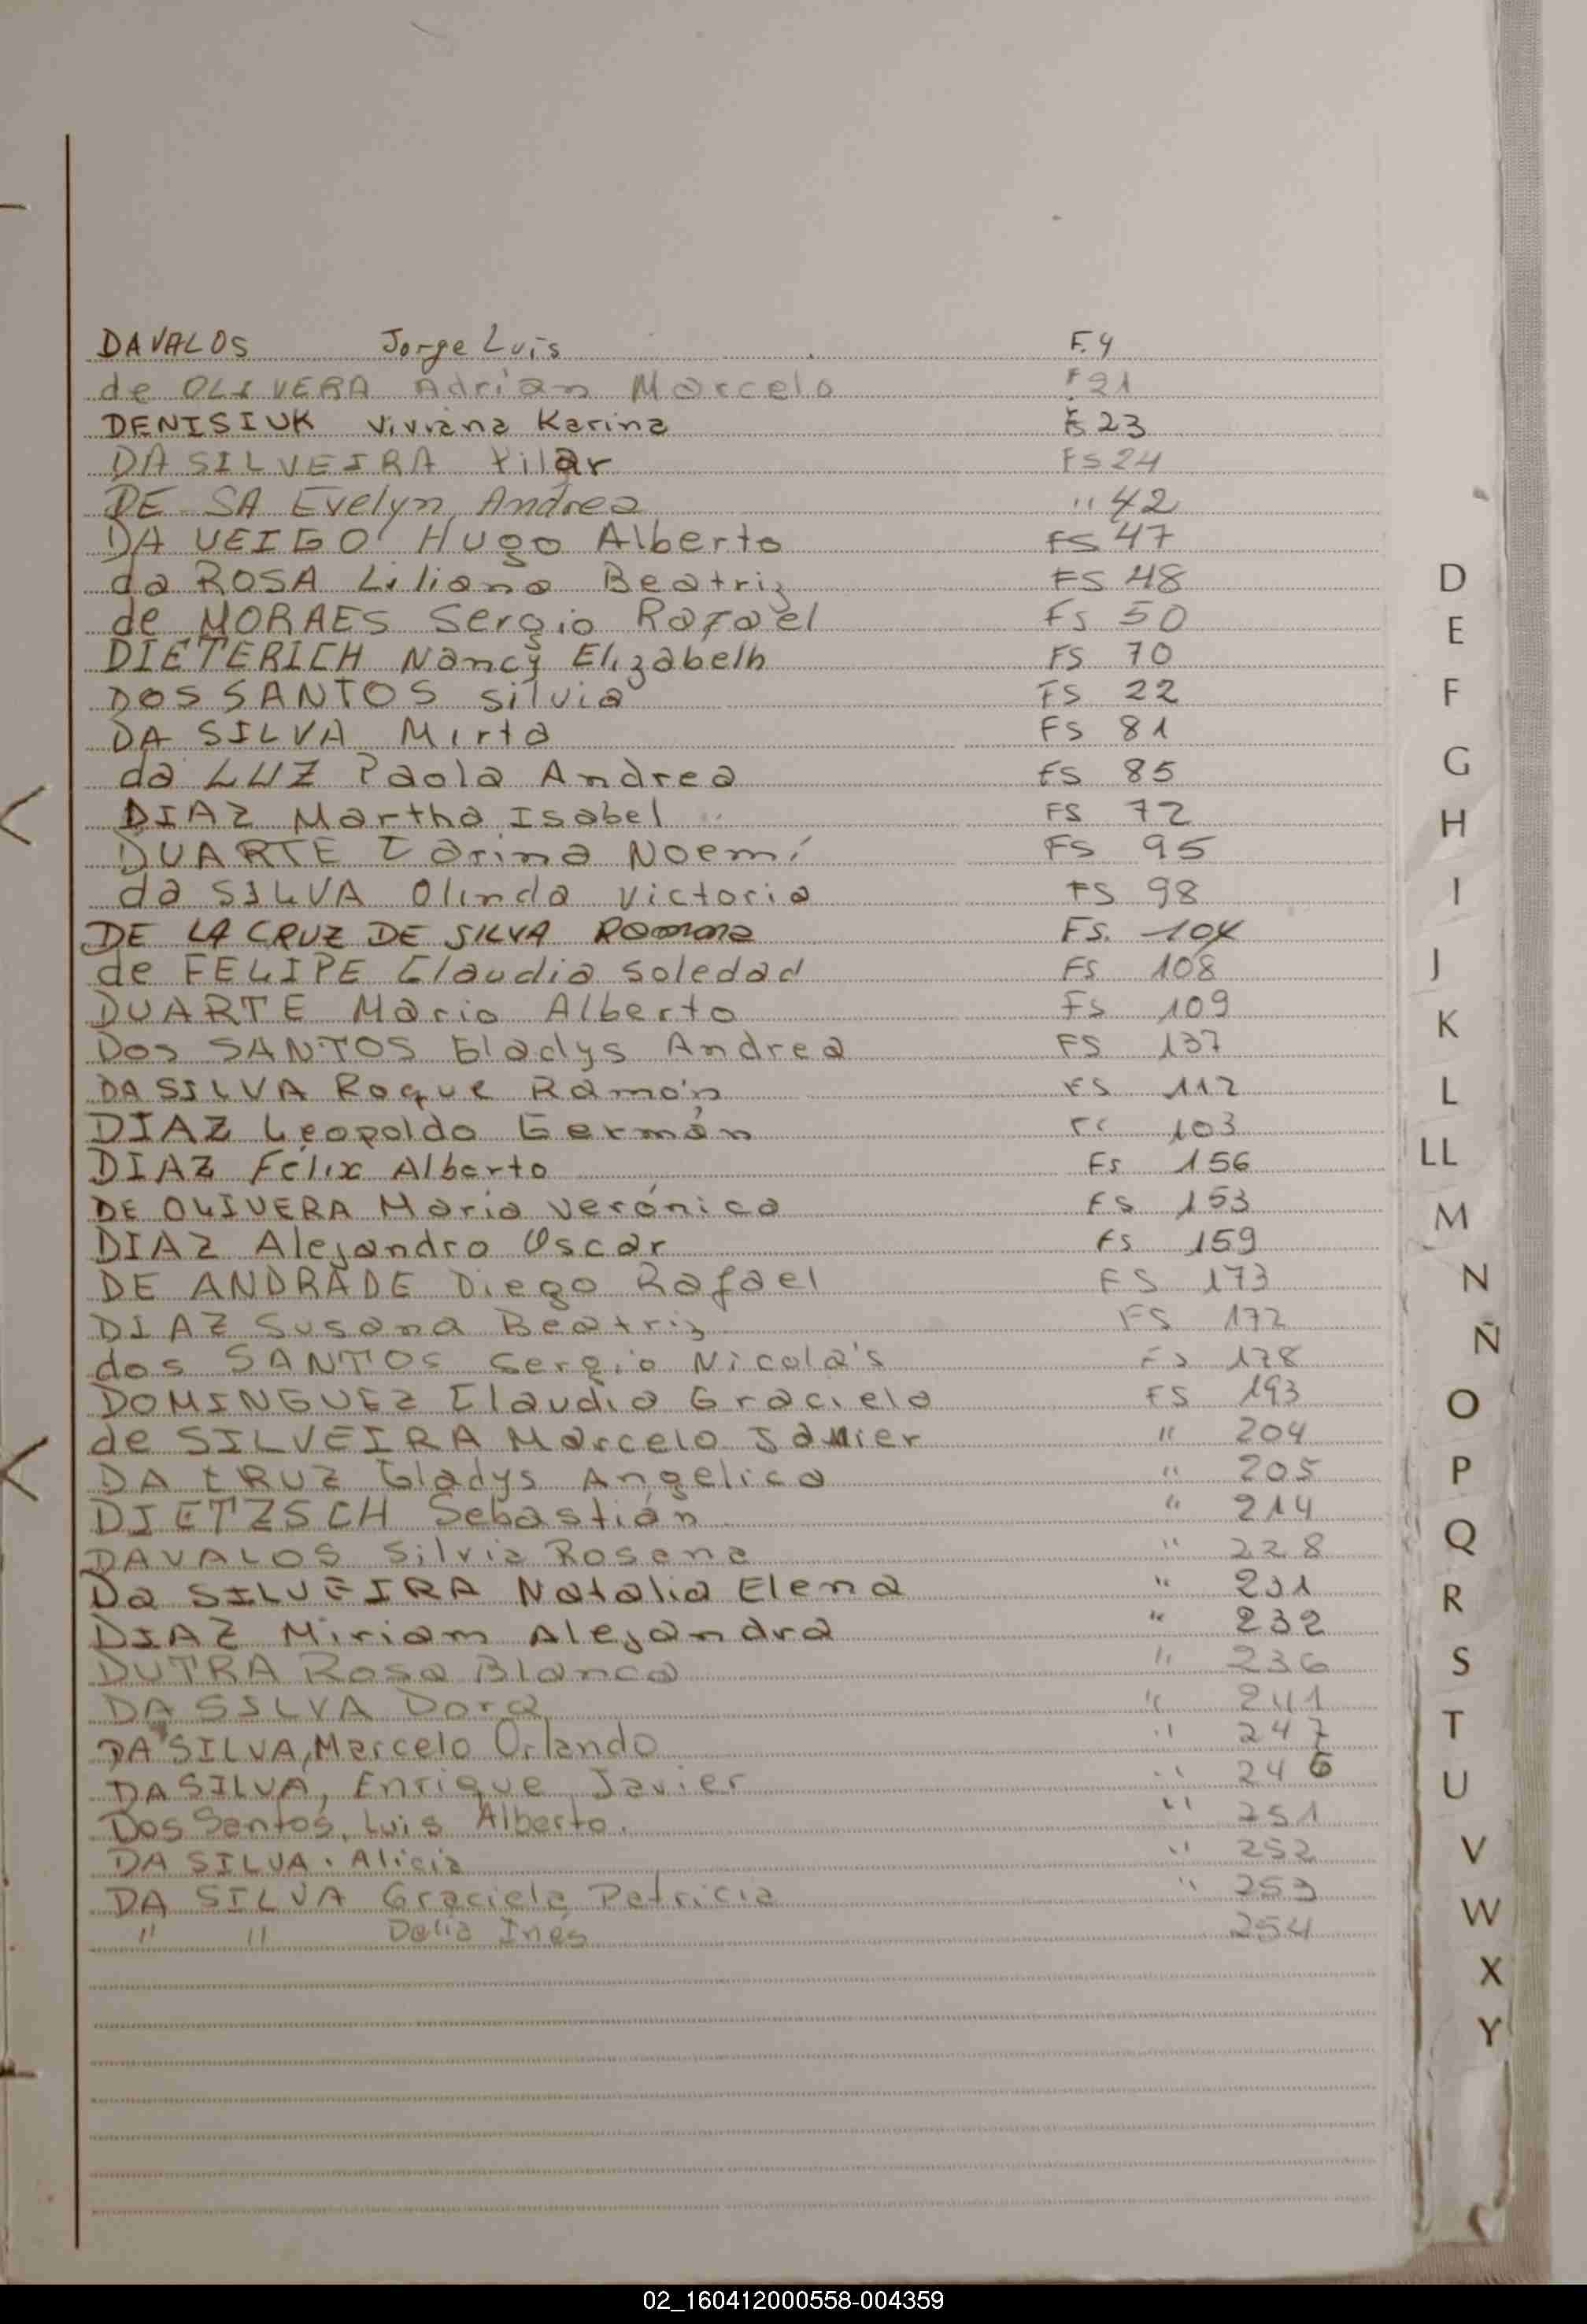 DAVALOS Jorge Luis F. 4
de OLIVERA Adrian Marcelo F 21
DENISIUK Viviana Karina F 23
DA SILVEIRA Pilar FS 24
DE SA Evelyn Andrea " 42
DA VEIGO Hugo Alberto FS 47
da ROSA Liliana Beatriz FS 48
de MORAES Sergio Rafael FS 50
DIETERICH Nancy Elizabeth FS 70
DOS SANTOS Silvia FS 22
DA SILVA Mirta FS 81
da LUZ Paola Andrea FS 85
DIAZ Martha Isabel FS 72
DUARTE Carina Noemí FS 95
da SILVA Olinda Victoria FS 98
DE LA CRUZ DE SILVA Romina FS. 104
de FELIPE Claudia Soledad FS 108
DUARTE Mario Alberto FS 109
Dos SANTOS Gladys Andrea FS 137
DA SILVA Roque Ramón FS 112
DIAZ Leopoldo Germán FS 103
DIAZ Félix Alberto FS 156
DE OLIVERA María Verónica FS 153
DIAZ Alejandro Oscar FS 159
DE ANDRADE Diego Rafael FS 173
DIAZ Susana Beatriz FS 172
dos SANTOS Sergio Nicolás FS 178
DOMINGUEZ Claudia Graciela FS 193
de SILVEIRA Marcelo Javier " 204
DA CRUZ Gladys Angelica " 205
DIETZSCH Sebastián " 214
DAVALOS Silvia Rosana " 228
Da SILVEIRA Natalia Elena " 231
DIAZ Miriam Alejandra " 232
DUTRA Rosa Blanca " 236
DA SILVA Dora " 241
DA SILVA, Marcelo Orlando " 247
DA SILVA, Enrique Javier " 246
Dos Santos, Luis Alberto. " 251
DA SILVA. Alicia " 252
DA SILVA Graciela Patricia " 253
" " Delia Inés 254
D
E
F
G
H
I
J
K
L
LL
M
N
Ñ
O
P
Q
R
S
T
U
V
W
X
Y
02_160412000558-004359